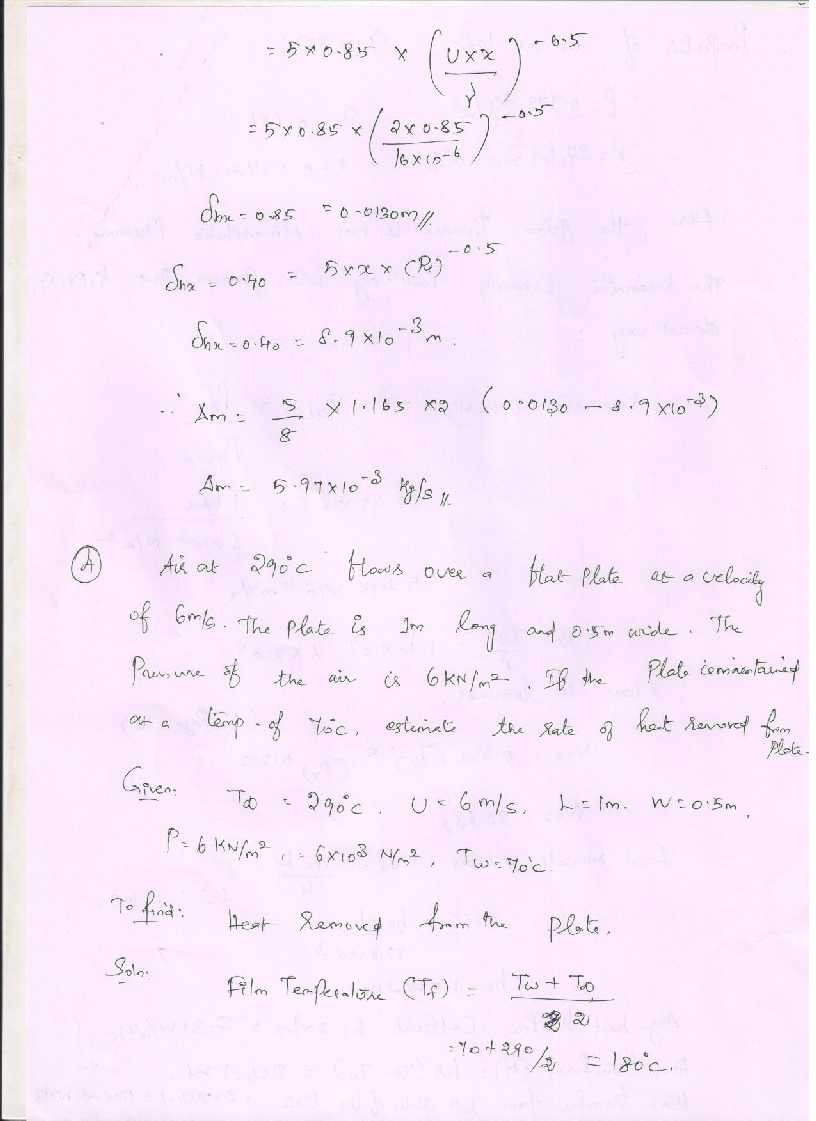 = 5 × 0.85 × (U×x / γ)^-0.5
= 5 × 0.85 × (2 × 0.85 / 16 × 10^-6)^-0.5
δhx = 0.85 = 0.0130m //.
δhx = 0.40 = 5 × x × (Re)^-0.5
δhx = 0.40 = 8.9 × 10^-3 m.
∴ Δm = 5/8 × 1.165 × 2 (0.0130 - 8.9 × 10^-3)
Δm = 5.97 × 10^-3 Kg/s //.
④ Air at 290°c flows over a flat plate at a velocity
of 6m/s. The plate is 1m long and 0.5m wide. The
Pressure of the air is 6KN/m². If the Plate is maintained
at a temp. of 70°c, estimate the rate of heat removed from
plate.
Given: T∞ = 290°c. U = 6m/s. L = 1m. W = 0.5m.
P = 6 KN/m², = 6×10³ N/m², Tw = 70°c
To find: Heat Removed from the plate.
Soln. Film Temperature (Tf) = Tw + T∞ / 2
= 70 + 290/2 = 180°c.